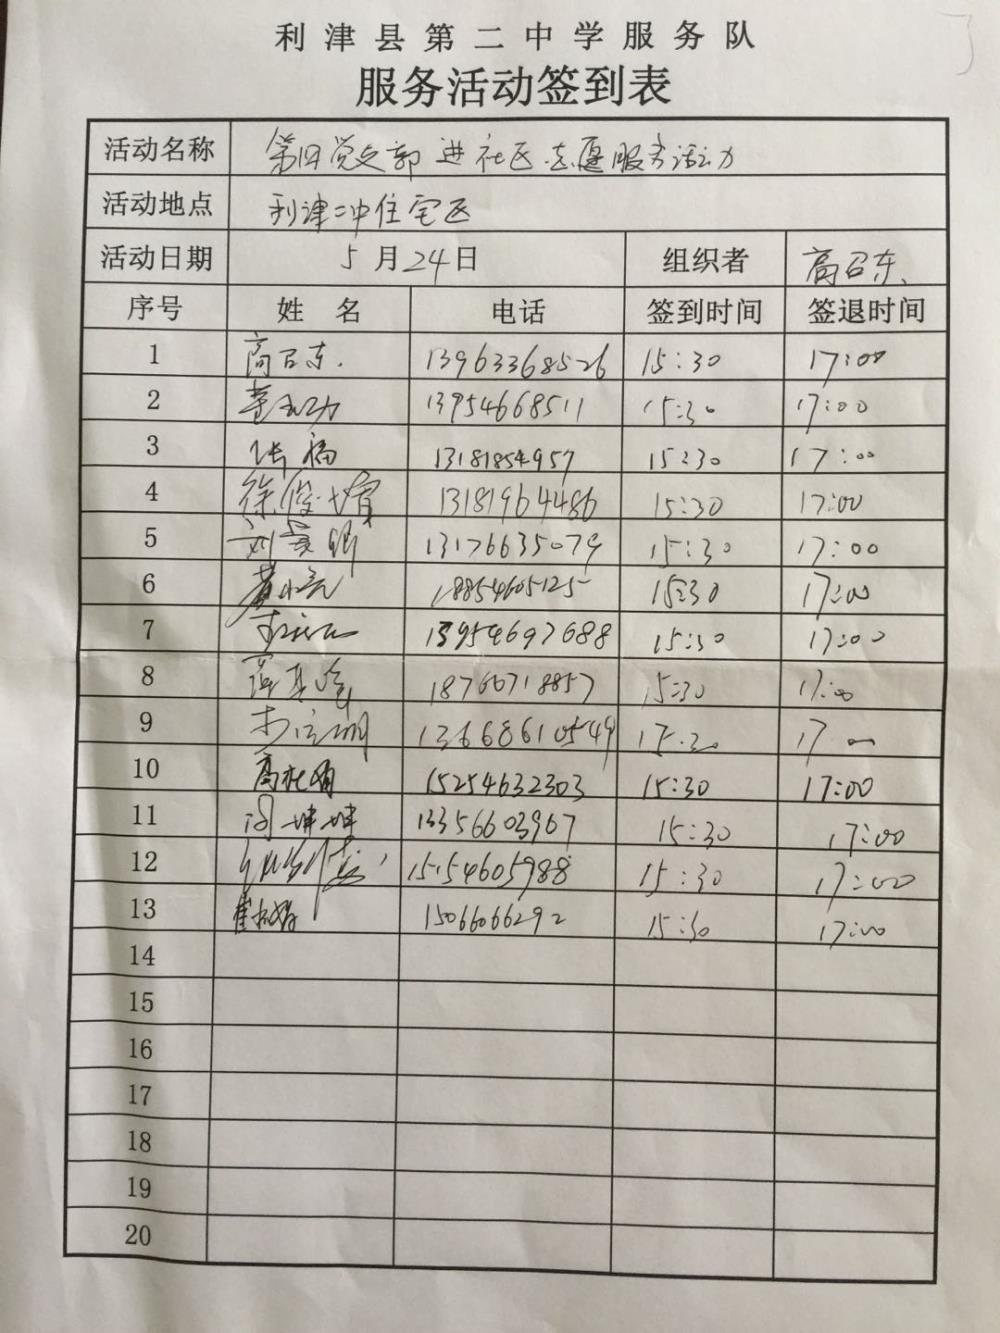 利津县第二中学服务队
服务活动签到表
活动名称 第四党支部进社区志愿服务活动
活动地点 利津二中住宅区
活动日期 5月24日 组织者 高召东、
序号 姓名 电话 签到时间 签退时间
1 高召东. 13963368526 15:30 17:00
2 13954668511 15:30 17:00
3 张福 13181854957 15:30 17:00
4 徐俊娟 13181964486 15:30 17:00
5 13176635079 15:30 17:00
6 18854605125 15:30 17:00
7 13954697688 15:30 17:00
8 18766718857 15:30 17:00
9 15:30 17:00
10 15254632303 15:30 17:00
11 13356603967 15:30 17:00
12 15154605988 15:30 17:00
13 15066066292 15:30 17:00
14
15
16
17
18
19
20